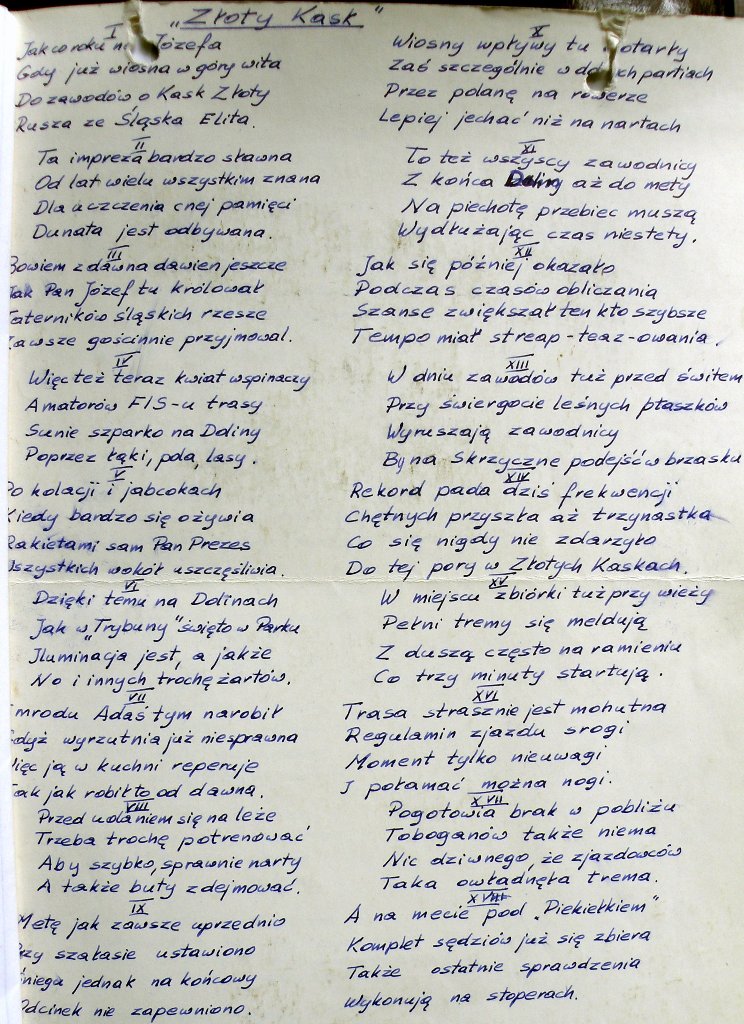 „Złoty Kask"
I
Jak co roku na Józefa
Gdy już wiosna w góry wita
Do zawodów o Kask Złoty
Rusza ze Śląska Elita.
II
Ta impreza bardzo sławna
Od lat wielu wszystkim znana
Dla uczczenia cnej pamięci
Dunata jest odbywana.
III
Bowiem z dawna dawien jeszcze
Jak Pan Józef tu królował
Taterników śląskich rzesze
Zawsze gościnnie przyjmował.
IV
Więc też teraz kwiat wspinaczy
Amatorów FIS-u trasy
Sunie szparko na Doliny
Poprzez łąki, pola, lasy.
V
Po kolacji i jabcokach
Kiedy bardzo się ożywia
Rakietami sam Pan Prezes
Wszystkich wokół uszczęśliwia.
VI
Dzięki temu na Dolinach
Jak w „Trybuny" święto w Parku
Iluminacja jest, a jakże
No i innych trochę żartów.
VII
Smrodu Adaś tym narobił
Gdyż wyrzutnia już niesprawna
Więc ją w kuchni reperuje
Tak jak robił to od dawna.
VIII
Przed udaniem się na leże
Trzeba trochę potrenować
Aby szybko, sprawnie narty
A także buty zdejmować.
IX
Metę jak zawsze uprzednio
Przy szałasie ustawiono
Śniegu jednak na końcowy
Odcinek nie zapewniono.
X
Wiosny wpływy tu dotarły
Zaś szczególnie w dolnych partiach
Przez polanę na rowerze
Lepiej jechać niż na nartach
XI
To też wszyscy zawodnicy
Z końca Doliny aż do mety
Na piechotę przebiec muszą
Wydłużając czas niestety.
XII
Jak się później okazało
Podczas czasów obliczania
Szanse zwiększał ten kto szybsze
Tempo miał streap-teaz-owania.
XIII
W dniu zawodów tuż przed świtem
Przy świergocie leśnych ptaszków
Wyruszają zawodnicy
By na Skrzyczne podejść w brzasku
XIV
Rekord pada dziś frekwencji
Chętnych przyszła aż trzynastka
Co się nigdy nie zdarzyło
Do tej pory w Złotych Kaskach.
XV
W miejscu zbiórki tuż przy wieży
Pełni tremy się meldują
Z duszą często na ramieniu
Co trzy minuty startują.
XVI
Trasa strasznie jest mohutna
Regulamin zjazdu srogi
Moment tylko nieuwagi
I połamać można nogi.
XVII
Pogotowia brak w pobliżu
Toboganów także niema
Nic dziwnego, że zjazdowców
Taka owładnęła trema.
XVIII
A na mecie pod „Piekiełkiem"
Komplet sędziów już się zbiera
Także ostatnie sprawdzenia
Wykonują na stoperach.